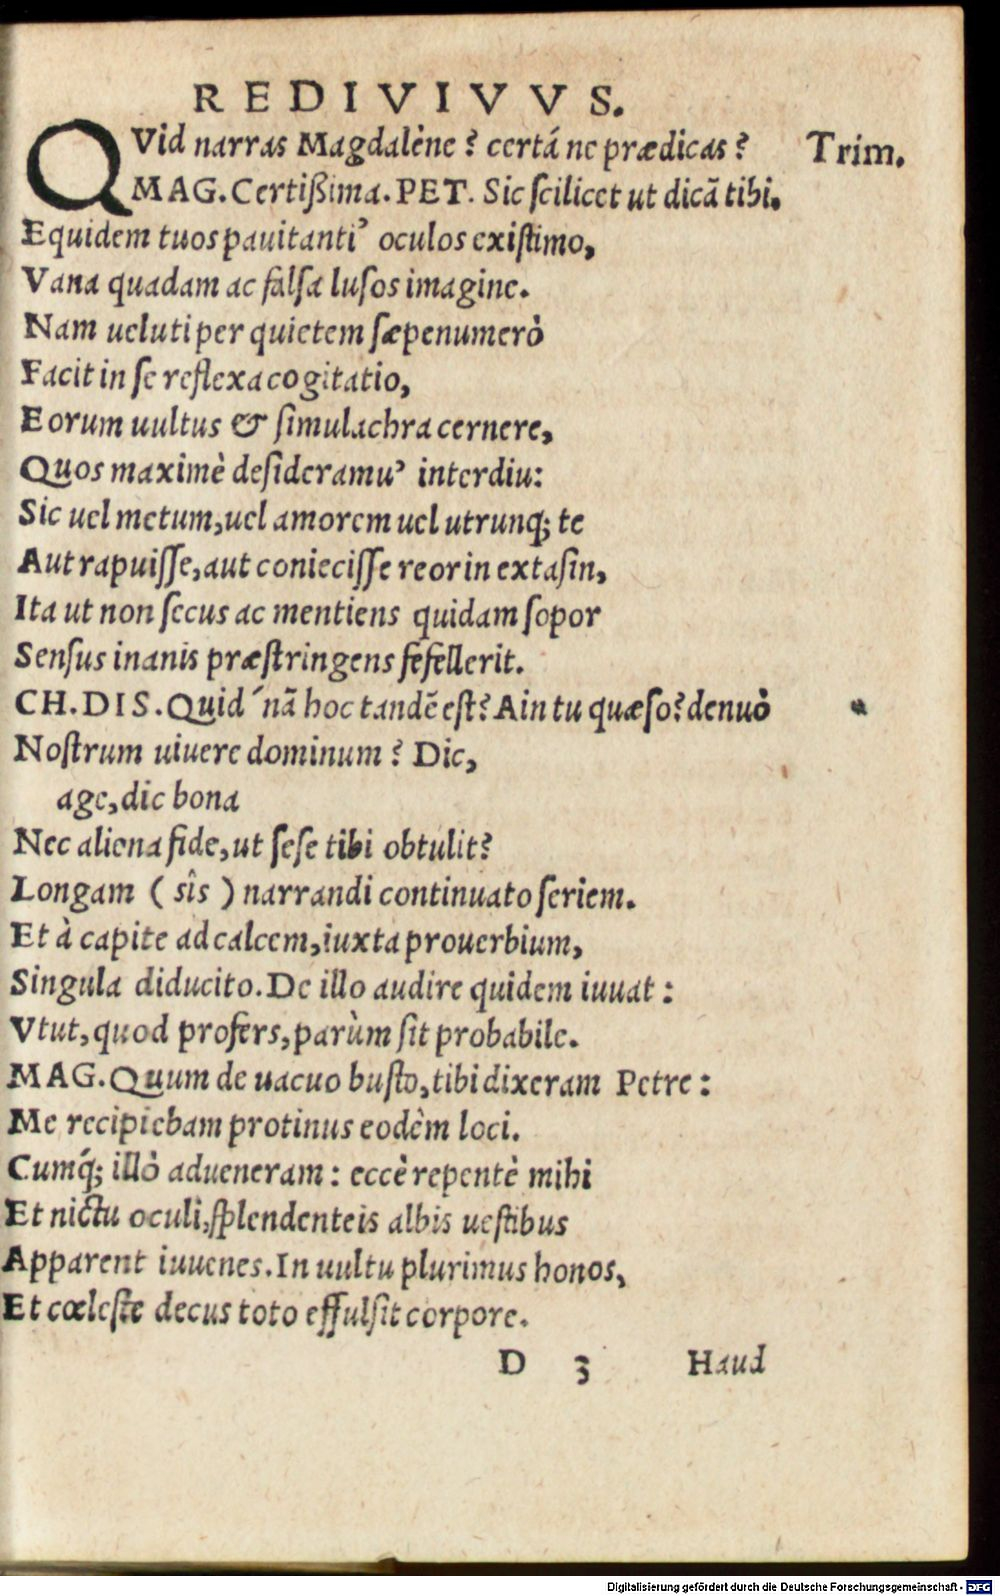 REDIVIVVS.
QVid narras Magdalène? certá ne prædicas? Trim.
MAG. Certißima. PET. Sic scilicet ut dicã tibi.
Equidem tuos pauitanti’ oculos existimo,
Vana quadam ac falsa lusos imagine.
Nam ueluti per quietem sæpenumerò
Facit in se reflexa cogitatio,
Eorum uultus & simulachra cernere,
Quos maximè desideramu’ interdiu:
Sic uel metum, uel amorem uel utrunq; te
Aut rapuisse, aut coniecisse reor in extasin,
Ita ut non secus ac mentiens quidam sopor
Sensus inanis præstringens fefellerit.
CH. DIS. Quid´nã hoc tandẽ est? Ain tu quæso? denuò
Nostrum uiuere dominum? Dic,
age, dic bona
Nec aliena fide, ut sese tibi obtulit?
Longam (sîs) narrandi continuato seriem.
Et à capite ad calcem, iuxta prouerbium,
Singula diducito. De illo audire quidem iuuat:
Vtut, quod profers, parùm sit probabile.
MAG. Quum de uacuo busto, tibi dixeram Petre:
Me recipiebam protinus eodèm loci.
Cumq́; illò adueneram: eccè repentè mihi
Et nictu oculi, splendenteis albis uestibus
Apparent iuuenes. In uultu plurimus honos,
Et cœleste decus toto effulsit corpore.
D 3 Haud
Digitalisierung gefördert durch die Deutsche Forschungsgemeinschaft - DFG